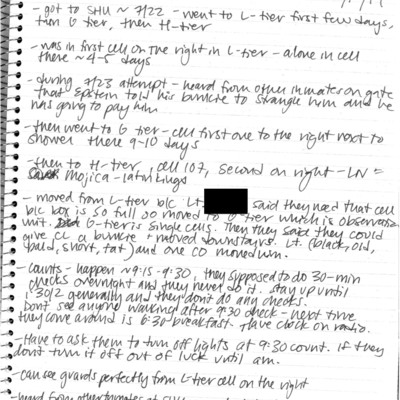 - got to SHU ~ 7/22 - went to L-tier first few days,
then G tier, then H-tier
- was in first cell on the right in L-tier - alone in cell
there ~4-5 days
- during 7/23 attempt - heard from other inmates on gate
that Epstein told his bunkie to strangle him and he
was going to pay him
- then went to G tier - cell first one to the right next to
shower there 9-10 days
- then to H-tier, cell 107, second on right - LN =
Mojica - latin kings
- moved from L-tier b/c Lt. said they need that cell
b/c box is so full so moved to G-tier which is observation
unit. G-tier is single cells. Then they said they could
give CI a bunkie + moved downstairs. Lt. (black, old,
bald, short, fat) and one CO moved him.
- Counts - happen ~9:15-9:30, they supposed to do 30-min
checks overnight and they never do it. stay up until
1:30/2 generally and they don't do any checks.
Don't see anyone walking after 9:30 check - next time
they come around is 6:30 breakfast. Have clock on radio.
- Have to ask them to turn off lights at 9:30 count. if they
don't turn it off out of luck until am.
- can see guards perfectly from L-tier cell on the right
- heard from other inmates